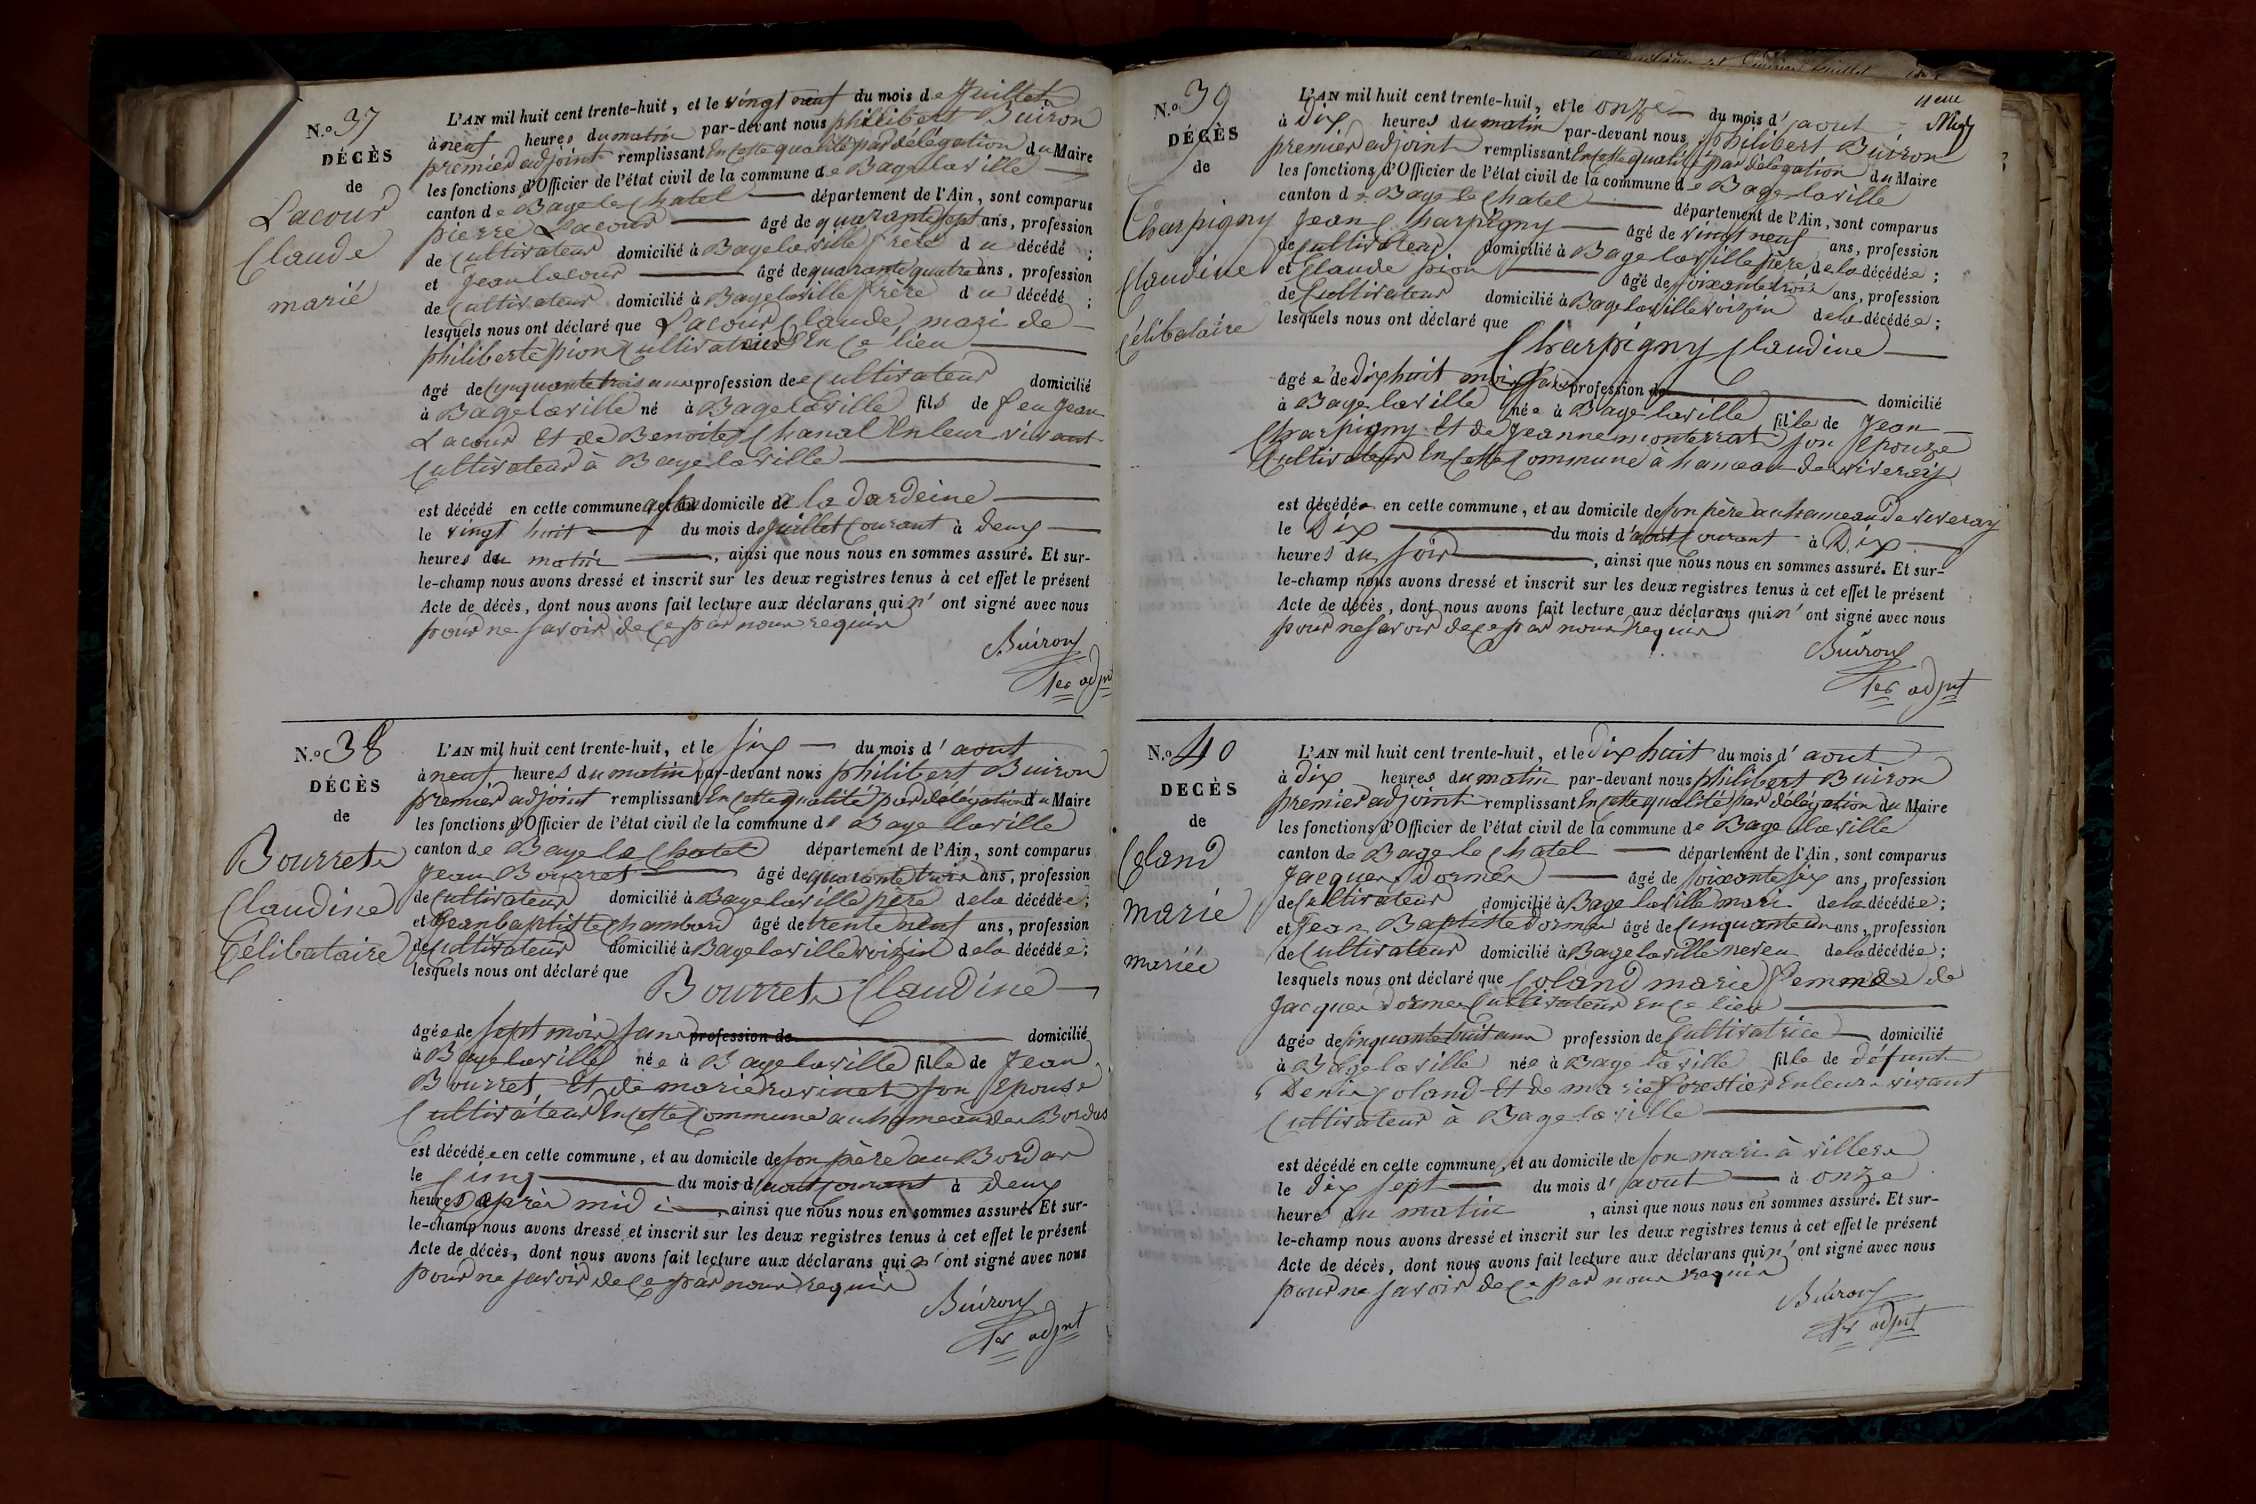 N.o 37
DÉCÈS
de
Lacour
Claude
marié
L'AN mil huit cent trente-huit, et le vingt neuf du mois de Juillet
à neuf heures du matin par-devant nous philibert Buiron
premier adjoint remplissant En cette qualité par délégation du Maire
les fonctions d'Officier de l'état civil de la commune de Bage laville
canton de Bage le Chatel département de l'Ain, sont comparus
pierre Lacour âgé de quarante sept ans, profession
de Cultivateur domicilié à Bage laville frère du décédé ;
et Jean lacour âgé de quarante quatre ans, profession
de Cultivateur domicilié à Bage laville frère du décédé ;
lesquels nous ont déclaré que Lacour Claude, mari de
philiberte pion Cultivatrice En Ce lieu
âgé de Cinquante trois ans profession de Cultivateur domicilié
à Bage laville né à Bage laville fils de feu Jean
Lacour Et de Benoite Chanal En leur vivant
Cultivateur à Bage laville
est décédé en cette commune domicile de la dardeine
le vingt huit du mois de Juillet Courant à deux
heures du matin, ainsi que nous nous en sommes assuré. Et sur-
le-champ nous avons dressé et inscrit sur les deux registres tenus à cet effet le présent
Acte de décès, dont nous avons fait lecture aux déclarans qui n'ont signé avec nous
pour ne savoir de Ce par nous requis
Buiron
1er adjnt
N.o 38
DÉCÈS
de
Bourret
Claudine
Célibataire
L'AN mil huit cent trente-huit, et le six du mois d'aout
à neuf heures du matin par-devant nous philibert Buiron
premier adjoint remplissant En cette qualité par délégation du Maire
les fonctions d'Officier de l'état civil de la commune de Bage laville
canton de Bage le Chatel département de l'Ain, sont comparus
Jean Bourret âgé de quarante trois ans, profession
de Cultivateur domicilié à Bage laville père de la décédée ;
et Jean baptiste Chambard âgé de trente neuf ans, profession
de Cultivateur domicilié à Bage laville voizin de la décédée ;
lesquels nous ont déclaré que
Bourret Claudine
âgée de sept mois sans profession de domicilié
à Bage laville née à Bage laville fille de Jean
Bourret Et de marie ravinet son Epouse
Cultivateur En cette Commune au hameau des Bordes
est décédée en cette commune, et au domicile de son père au Bordas
le Cinq du mois d'aout Courant à deux
heures après midi, ainsi que nous nous en sommes assuré. Et sur-
le-champ nous avons dressé et inscrit sur les deux registres tenus à cet effet le présent
Acte de décès, dont nous avons fait lecture aux déclarans qui n'ont signé avec nous
pour ne savoir de Ce par nous requis
Buiron
1er adjnt
N.o 39
DÉCÈS
de
Charpigny
Claudine
Célibataire
L'AN mil huit cent trente-huit, et le onze du mois d'aout
à Dix heures du matin par-devant nous philibert Buiron
premier adjoint remplissant En cette qualité par délégation du Maire
les fonctions d'Officier de l'état civil de la commune de Bage laville
canton de Bage le Chatel département de l'Ain, sont comparus
Jean Charpigny âgé de vingt neuf ans, profession
de Cultivateur domicilié à Bage laville père de la décédée ;
et Claude pion âgé de soixante trois ans, profession
de Cultivateur domicilié à Bage laville voizin de la décédée ;
lesquels nous ont déclaré que
Charpigny Claudine
âgée de dix huit mois sans profession de domicilié
à Bage laville née à Bage laville fille de Jean
Charpigny Et de Jeanne monterrat son Epouze
Cultivateur En Cette Commune à hameau de viveray
est décédée en cette commune, et au domicile de son père au hameau de viveray
le Dix du mois d'aout Courant à Dix
heures du soir, ainsi que nous nous en sommes assuré. Et sur-
le-champ nous avons dressé et inscrit sur les deux registres tenus à cet effet le présent
Acte de décès, dont nous avons fait lecture aux déclarans qui n'ont signé avec nous
pour ne savoir de ce par nous requis
Buiron
1er adjnt
N.o 40
DÉCÈS
de
Coland
marie
mariée
L'AN mil huit cent trente-huit, et le Dix huit du mois d'aout
à dix heures du matin par-devant nous philibert Buiron
premier adjoint remplissant En cette qualité par délégation du Maire
les fonctions d'Officier de l'état civil de la commune de Bage laville
canton de Bage le Chatel département de l'Ain, sont comparus
Jacques dormer âgé de soixante six ans, profession
de Cultivateur domicilié à Bage laville mari de la décédée ;
et Jean Baptiste dormer âgé de Cinquante un ans, profession
de Cultivateur domicilié à Bage laville neveu de la décédée ;
lesquels nous ont déclaré que Coland marie femme de
Jacques dormer Cultivateur En ce lieu
âgée de Cinquante huit ans profession de Cultivatrice domicilié
à Bage laville née à Bage laville fille de défunt
Denis Coland Et de marie forestier En leur vivant
Cultivateur à Bage laville
est décédé en cette commune, et au domicile de son mari à villers
le dix sept du mois d'aout à onze
heure du matin, ainsi que nous nous en sommes assuré. Et sur-
le-champ nous avons dressé et inscrit sur les deux registres tenus à cet effet le présent
Acte de décès, dont nous avons fait lecture aux déclarans qui n'ont signé avec nous
pour ne savoir de ce par nous requis
Buiron
1er adjnt